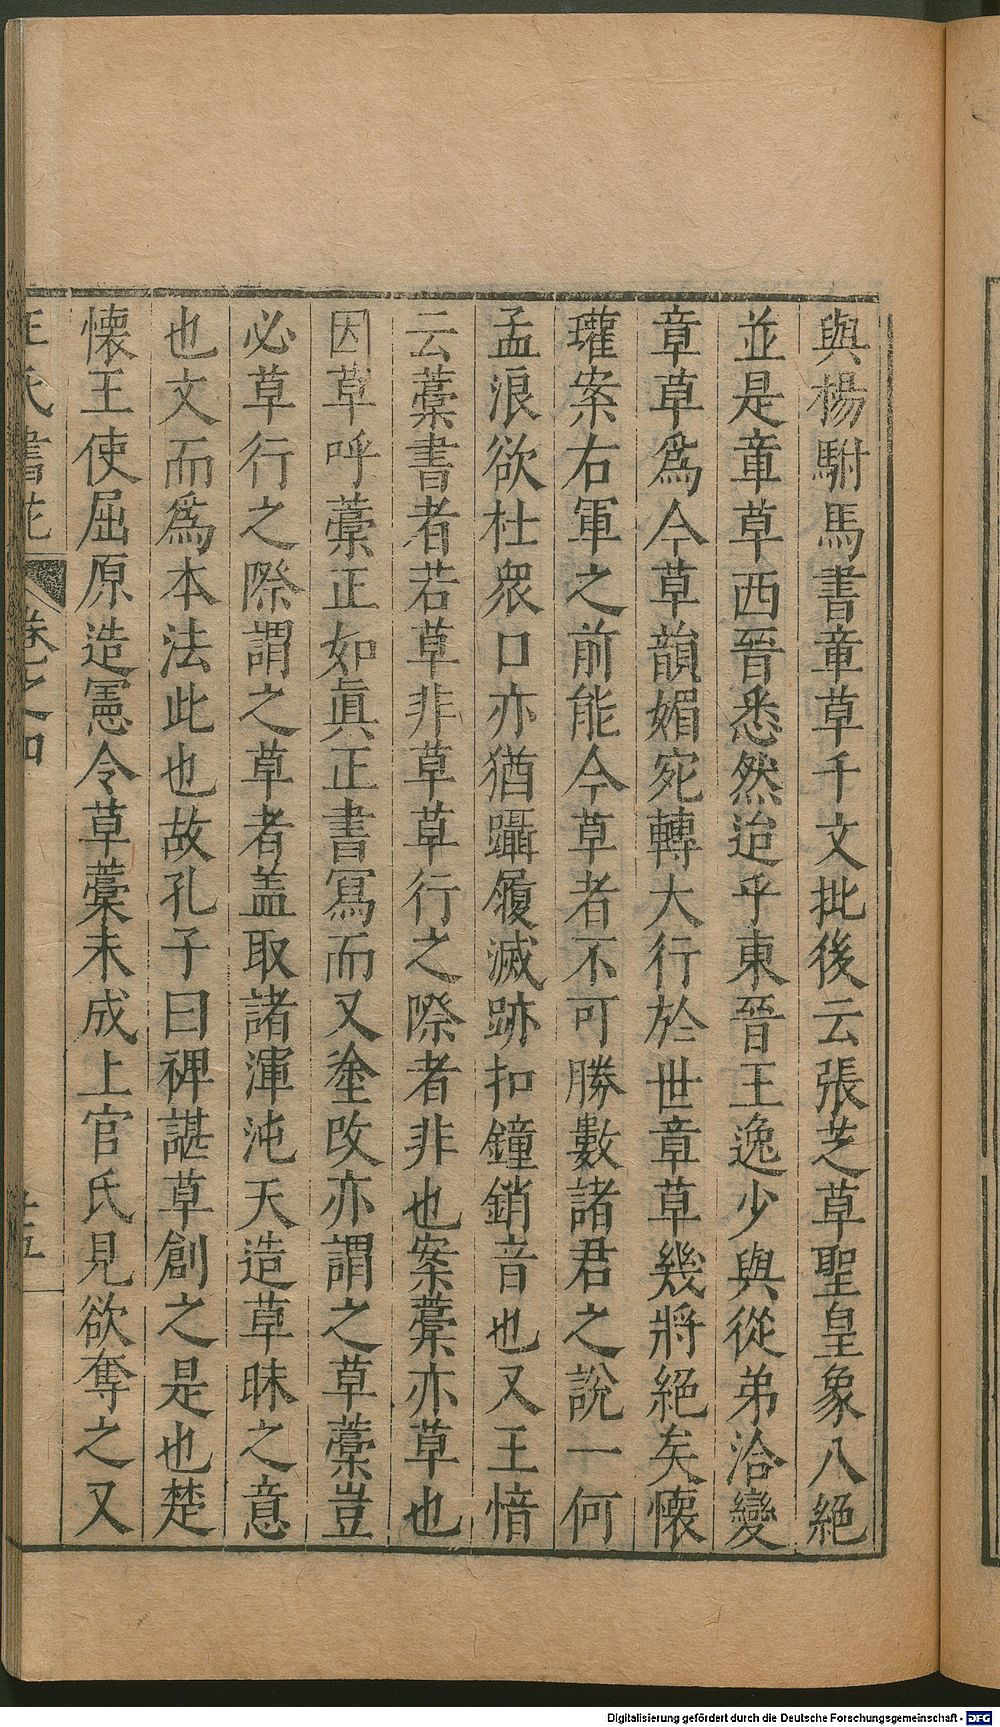 與楊駙馬書章草千文批後云張芝草聖皇象八絕
並是章草西晉悉然迨乎東晉王逸少與從弟洽變
章草爲今草韻媚宛轉大行於世章草幾將絕矣懷
瓘案右軍之前能今草者不可勝數諸君之說一何
孟浪欲杜衆口亦猶躡履滅跡扣鐘銷音也又王愔
云藳書者若草非草草行之際者非也案藳亦草也
因草呼藳正如眞正書寫而又塗改亦謂之草藳豈
必草行之際謂之草者盖取諸渾沌天造草昧之意
也文而爲本法此也故孔子曰裨諶草創之是也楚
懷王使屈原造憲令草藳未成上官氏見欲奪之又
王氏書苑 卷之四 十五
Digitalisierung gefördert durch die Deutsche Forschungsgemeinschaft - DFG